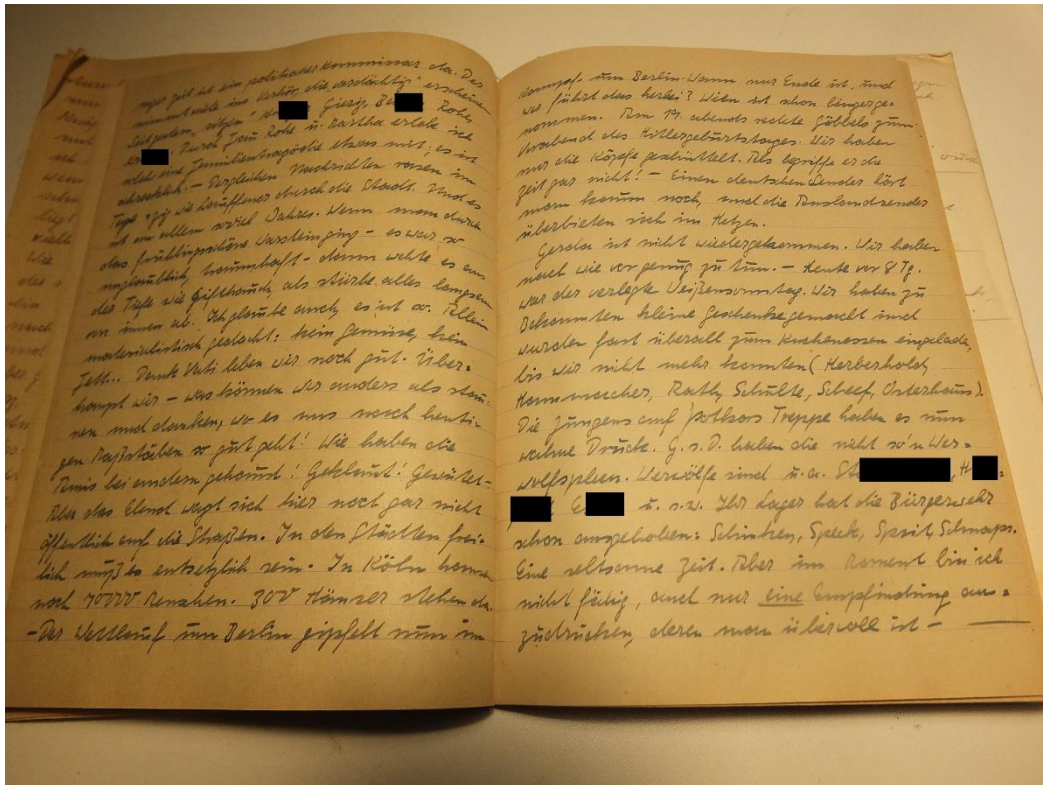 niger Zeit ist ein politischer Kommissar da. Der
nimmt viele ins Verhör, die „verdächtig" erscheinen
Giersg, Be Rohe,
Durch Frau Rohe u. Martha erlebe ich
eine Familientragödie etwas mit; es ist
schrecklich. – Dergleichen Nachrichten rasen im
Tage wie Lauffeuer durch die Stadt. Und es
ist an allem soviel Wahres. Wenn man durch
das frühlingsschöne Warstein ging – es war so
unglaublich, traumhaft – dann wehte es aus
der Tiefe wie Gifthauch, als stürbe alles langsam
von innen ab. Ich glaube auch, es ist so. Allein
materialistisch gedacht: kein Gemüse, kein
Fett... Dank Vati leben wir noch gut. Über-
haupt wir – was können wir anders als stau-
nen und danken, wo es uns nach heuti-
gen Maßstäben so gut geht! Wie haben die
Amis bei andern gehaust! Geklaut! Gewütet–
Aber das Elend wagt sich hier noch gar nicht
öffentlich auf die Straßen. In den Städten frei-
lich muß es entsetzlich sein. In Köln hausen
noch 70000 Menschen. 300 Häuser stehen da.
–Der Wettlauf um Berlin gipfelt nun im
Kampf um Berlin. Wann nur Ende ist, und
wer führt das herbei? Wien ist schon länger ge-
nommen. Am 19. abends redete Göbbels zum
Vorabend des Hitlergeburtstages. Wir haben
nur die Köpfe geschüttelt. Als begriffe er die
Zeit gar nicht! – Einen deutschen Sender hört
man kaum noch, und die Auslandsender
überbieten sich im Hetzen.
Gerda ist nicht wiedergekommen. Wir haben
nach wie vor genug zu tun. – Heute vor 8 Tg.
war der verlegte Weißensonntag. Wir haben zu
Bekannten kleine Geschenke gemacht und
wurden fast überall zum Kuchenessen eingelade,
bis wir nicht mehr konnten (Herberhold,
Hammacher, Rath, Schulte, Scheef, Osterhaus).
Die Jungens auf Treppe haben es nun
Druck. G. s. D. haben die nicht so'n Wer=
wolfspleen. Werwölfe sind u. a. St H
E u. s. w. Ihr Lager hat die Bürgerwehr
schon ausgehoben: Schinken, Speck, Sprit, Schnaps.
Eine seltsame Zeit. Aber im Moment bin ich
nicht fähig, auch nur eine Empfindung aus=
zudrücken, deren man übervoll ist –